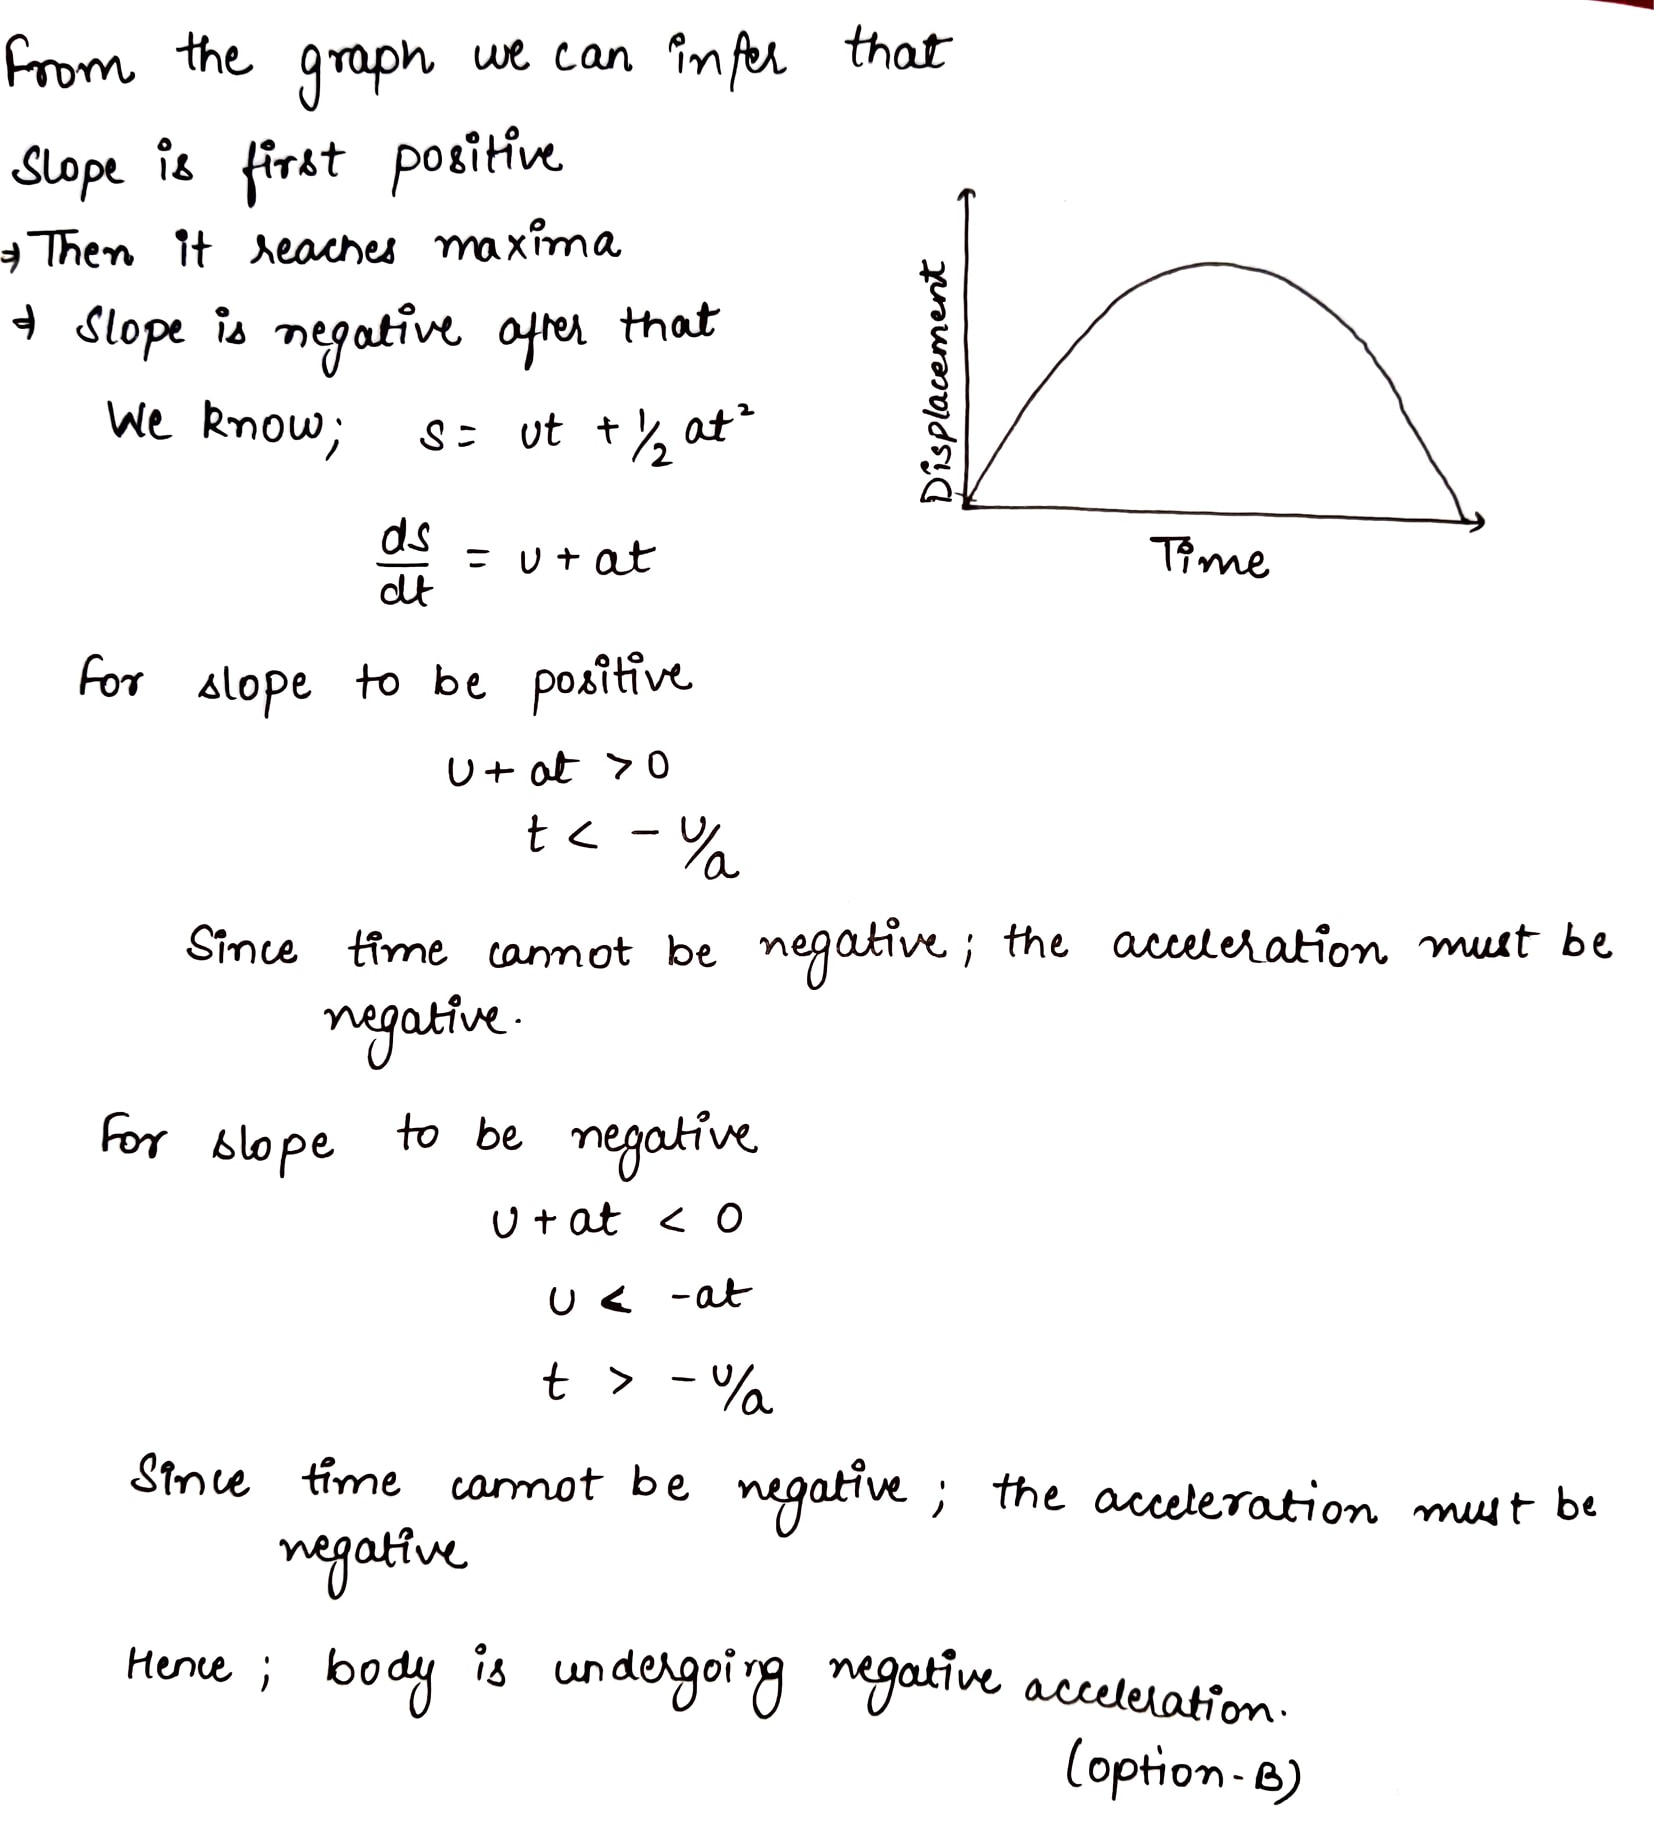 From the graph we can infer that
Slope is first positive
⇒ Then it reaches maxima
⇒ Slope is negative after that
We know; s = ut + 1/2 at²
ds/dt = u + at
For slope to be positive
u + at > 0
t < - u/a
Since time cannot be negative; the acceleration must be
negative.
For slope to be negative
u + at < 0
u < -at
t > - u/a
Since time cannot be negative; the acceleration must be
negative
Hence; body is undergoing negative acceleration.
(option-B)
Displacement
Time